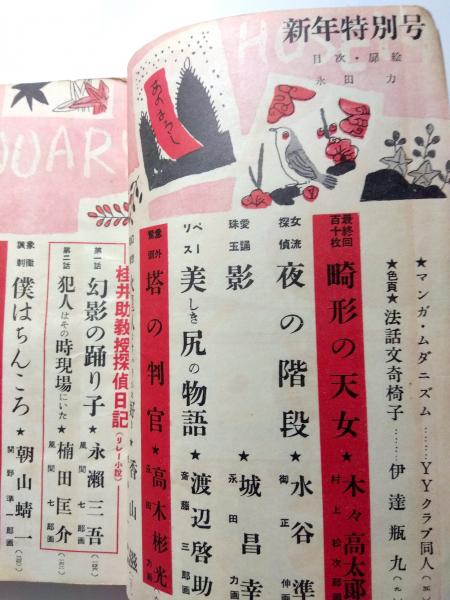 新年特別号
目次・扉絵
永田力
HOSEKI
あかよろし
★マンガ・ムダニズム……YYクラブ同人
★色頁★法話文奇椅子……伊達瓶九
最終回
百十枚
畸形の天女★木々高太郎
村上松次郎画
女流
探偵
夜の階段★水谷準
御正伸画
愛誦
珠玉
影★城昌幸
永田力画
美しき尻の物語★渡辺啓助
斎藤三郎画
塔の判官★高木彬光
永田力画
香山
桂井助教授探偵日記
(リレー小説)
第一話
幻影の踊り子★永瀬三吾
風間七郎画
第二話
犯人はその時現場にいた★楠田匡介
風間七郎画
諷刺
僕はちんころ★朝山蜻一
関野準一郎画